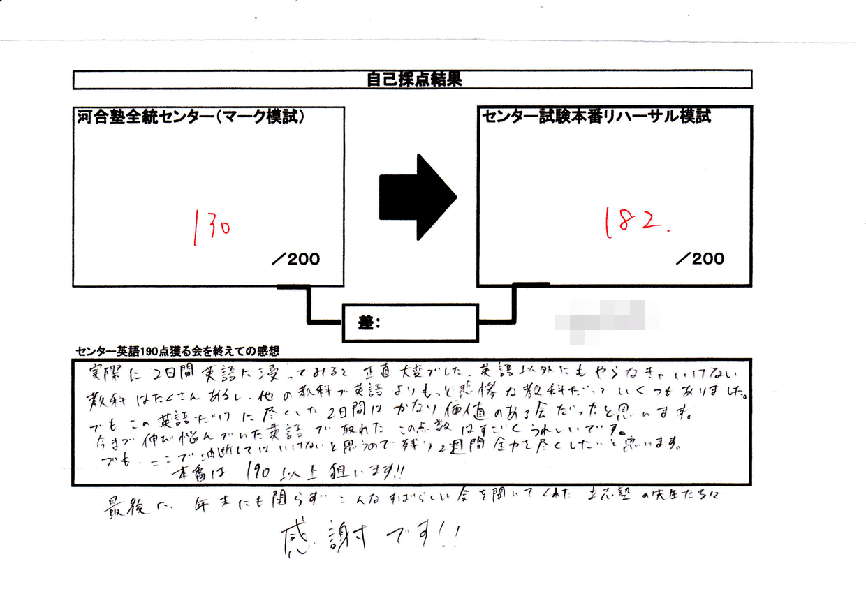 自己採点結果
河合塾全統センター(マーク模試)
130
/200
センター試験本番リハーサル模試
182.
/200
差:
センター英語190点獲る会を終えての感想
実際に2日間英語に浸ってみると正直大変でした。英語以外にもやらなきゃいけない
教科はたくさんあるし、他の教科で英語よりもっと悲惨な教科だっていくつもありました。
でもこの英語だけに尽くした2日間はかなり価値のある会だったと思います。
今まで伸び悩んでいた英語で取れたこの点数はすごくうれしいです。
でも、ここで油断してはいけないと思うので残り2週間全力を尽くしたいと思います。
本番は190以上狙います!!
最後に、年末にも関らずこんなすばらしい会を開いてくれた 志塾の先生たちに
感謝です!!